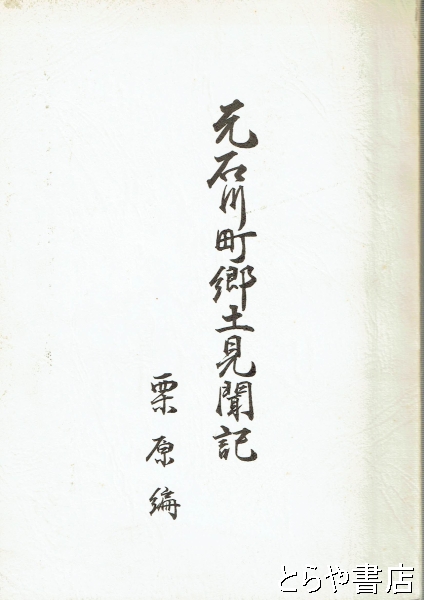 元石川町郷土見聞記
栗原編
とらや書店